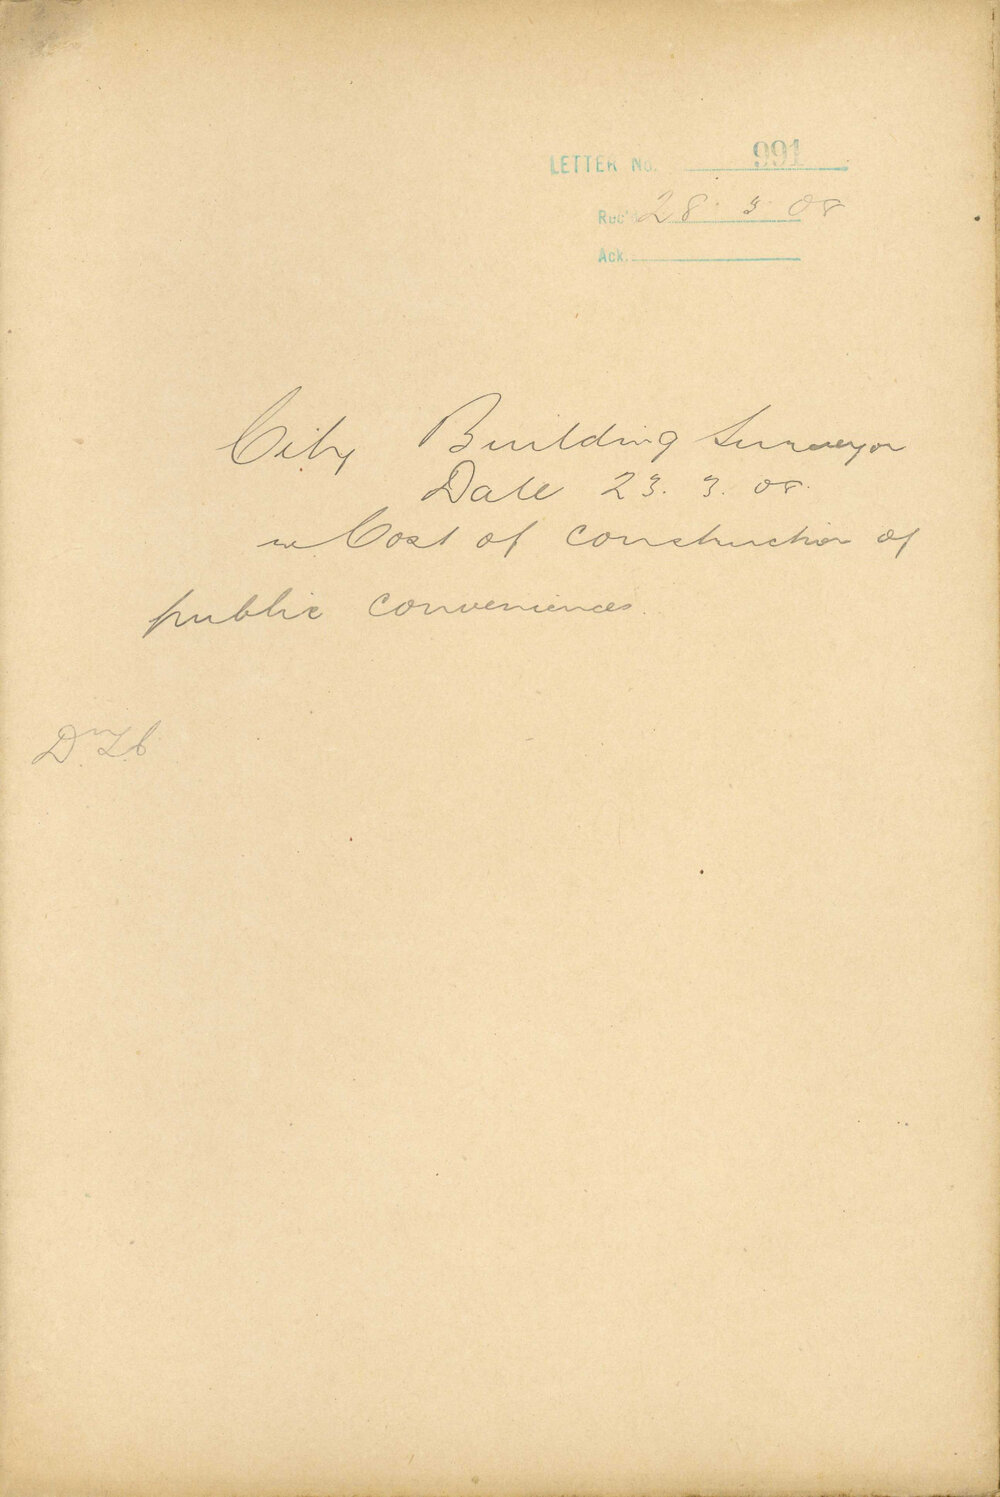 LETTER No. 991
Rec'd 28 3 08
Ack.
City Building Surveyor
Date 23. 3. 08.
re Cost of construction of
public conveniences.